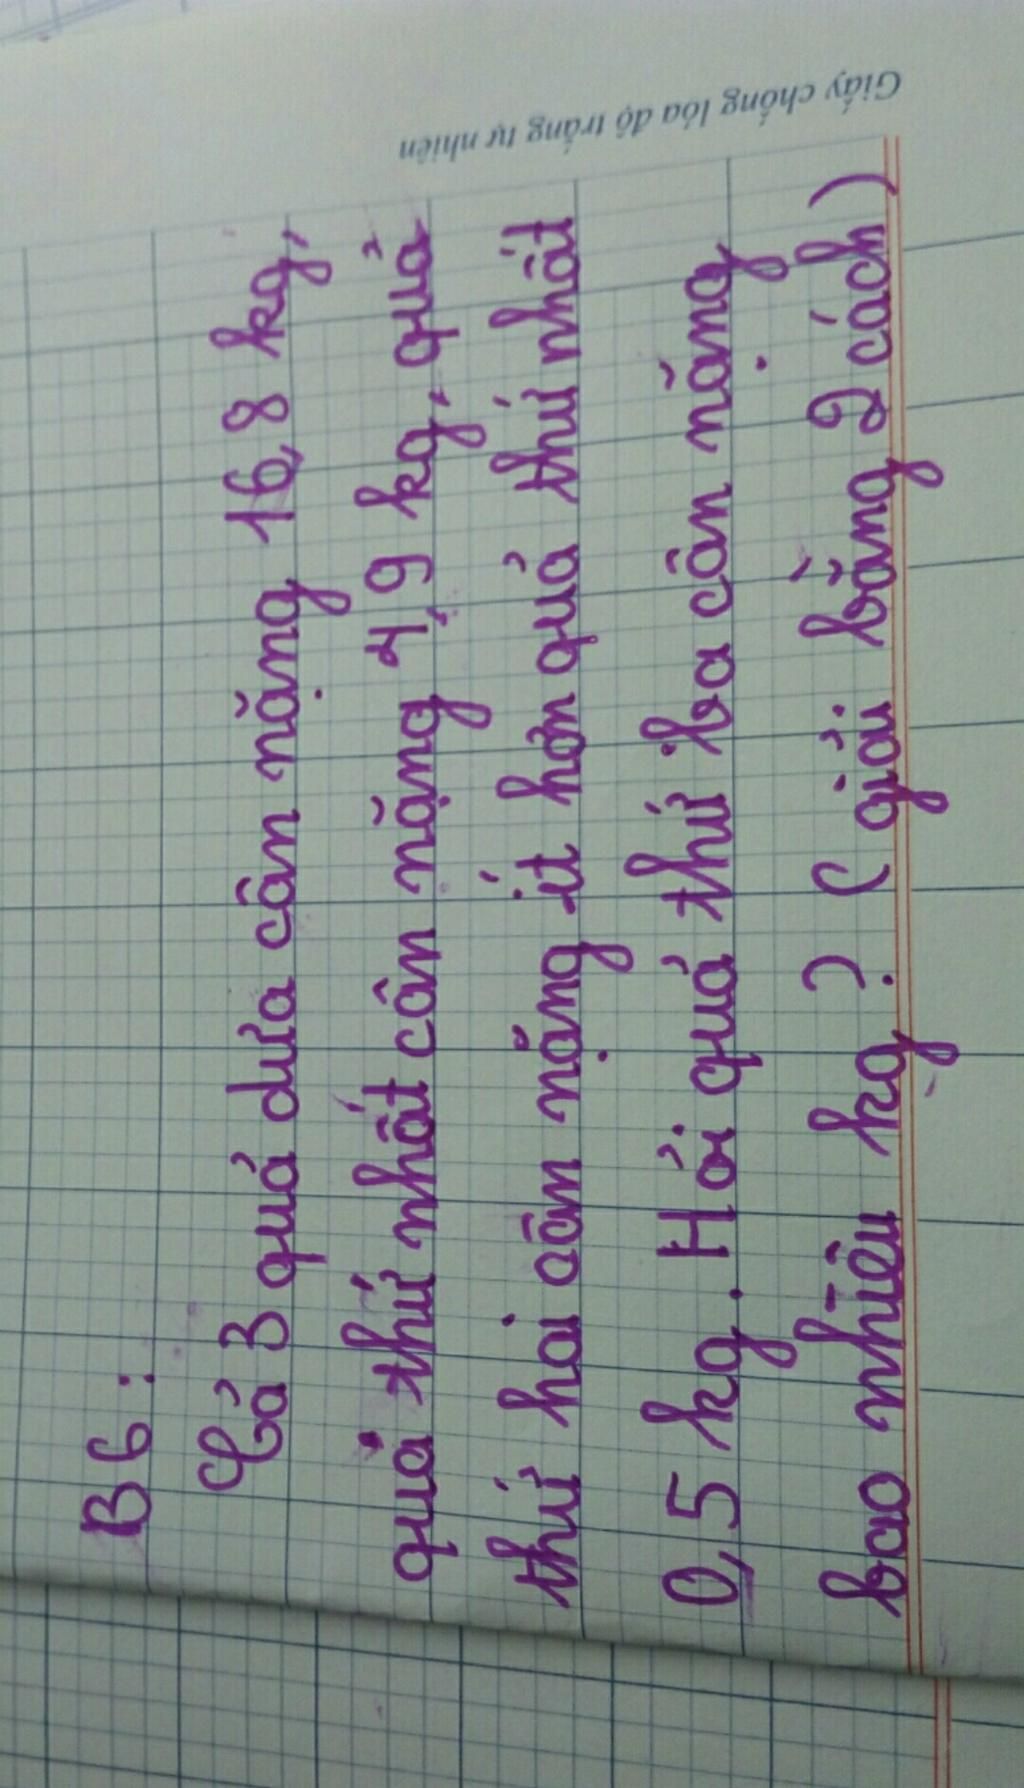 Giấy chống lóa độ trắng tự nhiên
B6:
Có 3 quả dưa cân nặng 16,8 kg,
quả thứ nhất cân nặng 4,9 kg, quả
thứ hai cân nặng ít hơn quả thứ nhất
0,5 kg. Hỏi quả thứ ba cân nặng
bao nhiêu kg? (giải bằng 2 cách)